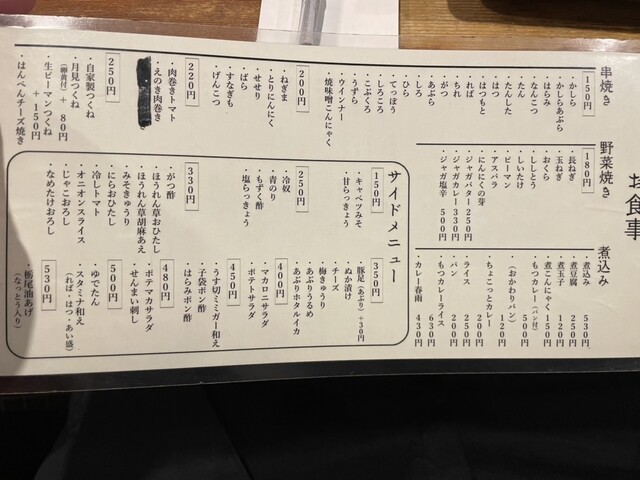 お食事
串焼き
150円
・かしら
・かしらあぶら
・はらみ
・なんこつ
・たん
・たんした
・はつもと
・はつ
・ちれ
・がつ
・あぶら
・しろ
・ひら
・てっぽう
・しろころ
・こぶくろ
・うずら
・ウインナー
・焼味噌こんにゃく
200円
・ねぎま
・とりにんにく
・せせり
・ぱら
・すなぎも
・げんこつ
220円
・肉巻きトマト
・えのき肉巻き
250円
・自家製つくね
・月見つくね
(卵黄付) + 80円
・生ピーマンつくね
+ 150円
・はんぺんチーズ焼き
野菜焼き
180円
・長ねぎ
・玉ねぎ
・おくら
・ししとう
・しいたけ
・ピーマン
・アスパラ
・にんにくの芽
・ジャガバター 250円
・ジャガカレー 330円
・ジャガ塩辛 500円
煮込み
・煮込み 530円
・煮豆腐 250円
・煮玉子 120円
・煮こんにゃく 150円
・もつカレー(パン付) 500円
(おかわりパン) 120円
・ちょこっとカレー 200円
・ライス 250円
・パン 200円
・もつカレーライス 630円
・カレー春雨 430円
サイドメニュー
150円
・キャベツみそ
・甘らっきょう
250円
・冷奴
・青のり
・もずく酢
・塩らっきょう
330円
・がつ酢
・ほうれん草おひたし
・ほうれん草胡麻あえ
・にらおひたし
・みそきゅうり
・冷しトマト
・オニオンスライス
・じゃこおろし
・なめたけおろし
350円
・豚足(あぶり)+30円
・ぬか漬け
・チーズ
・梅きゅうり
・あぶりうるめ
・あぶりホタルイカ
400円
・マカロニサラダ
・ポテトサラダ
450円
・うす切ミミガー和え
・子袋ポン酢
・はらみポン酢
480円
・ポテマカサラダ
・せんまい刺し
500円
・ゆでたん
・スタミナ和え
(れば・はつ・あい盛)
530円
・栃尾油あげ
(なっとう入り)